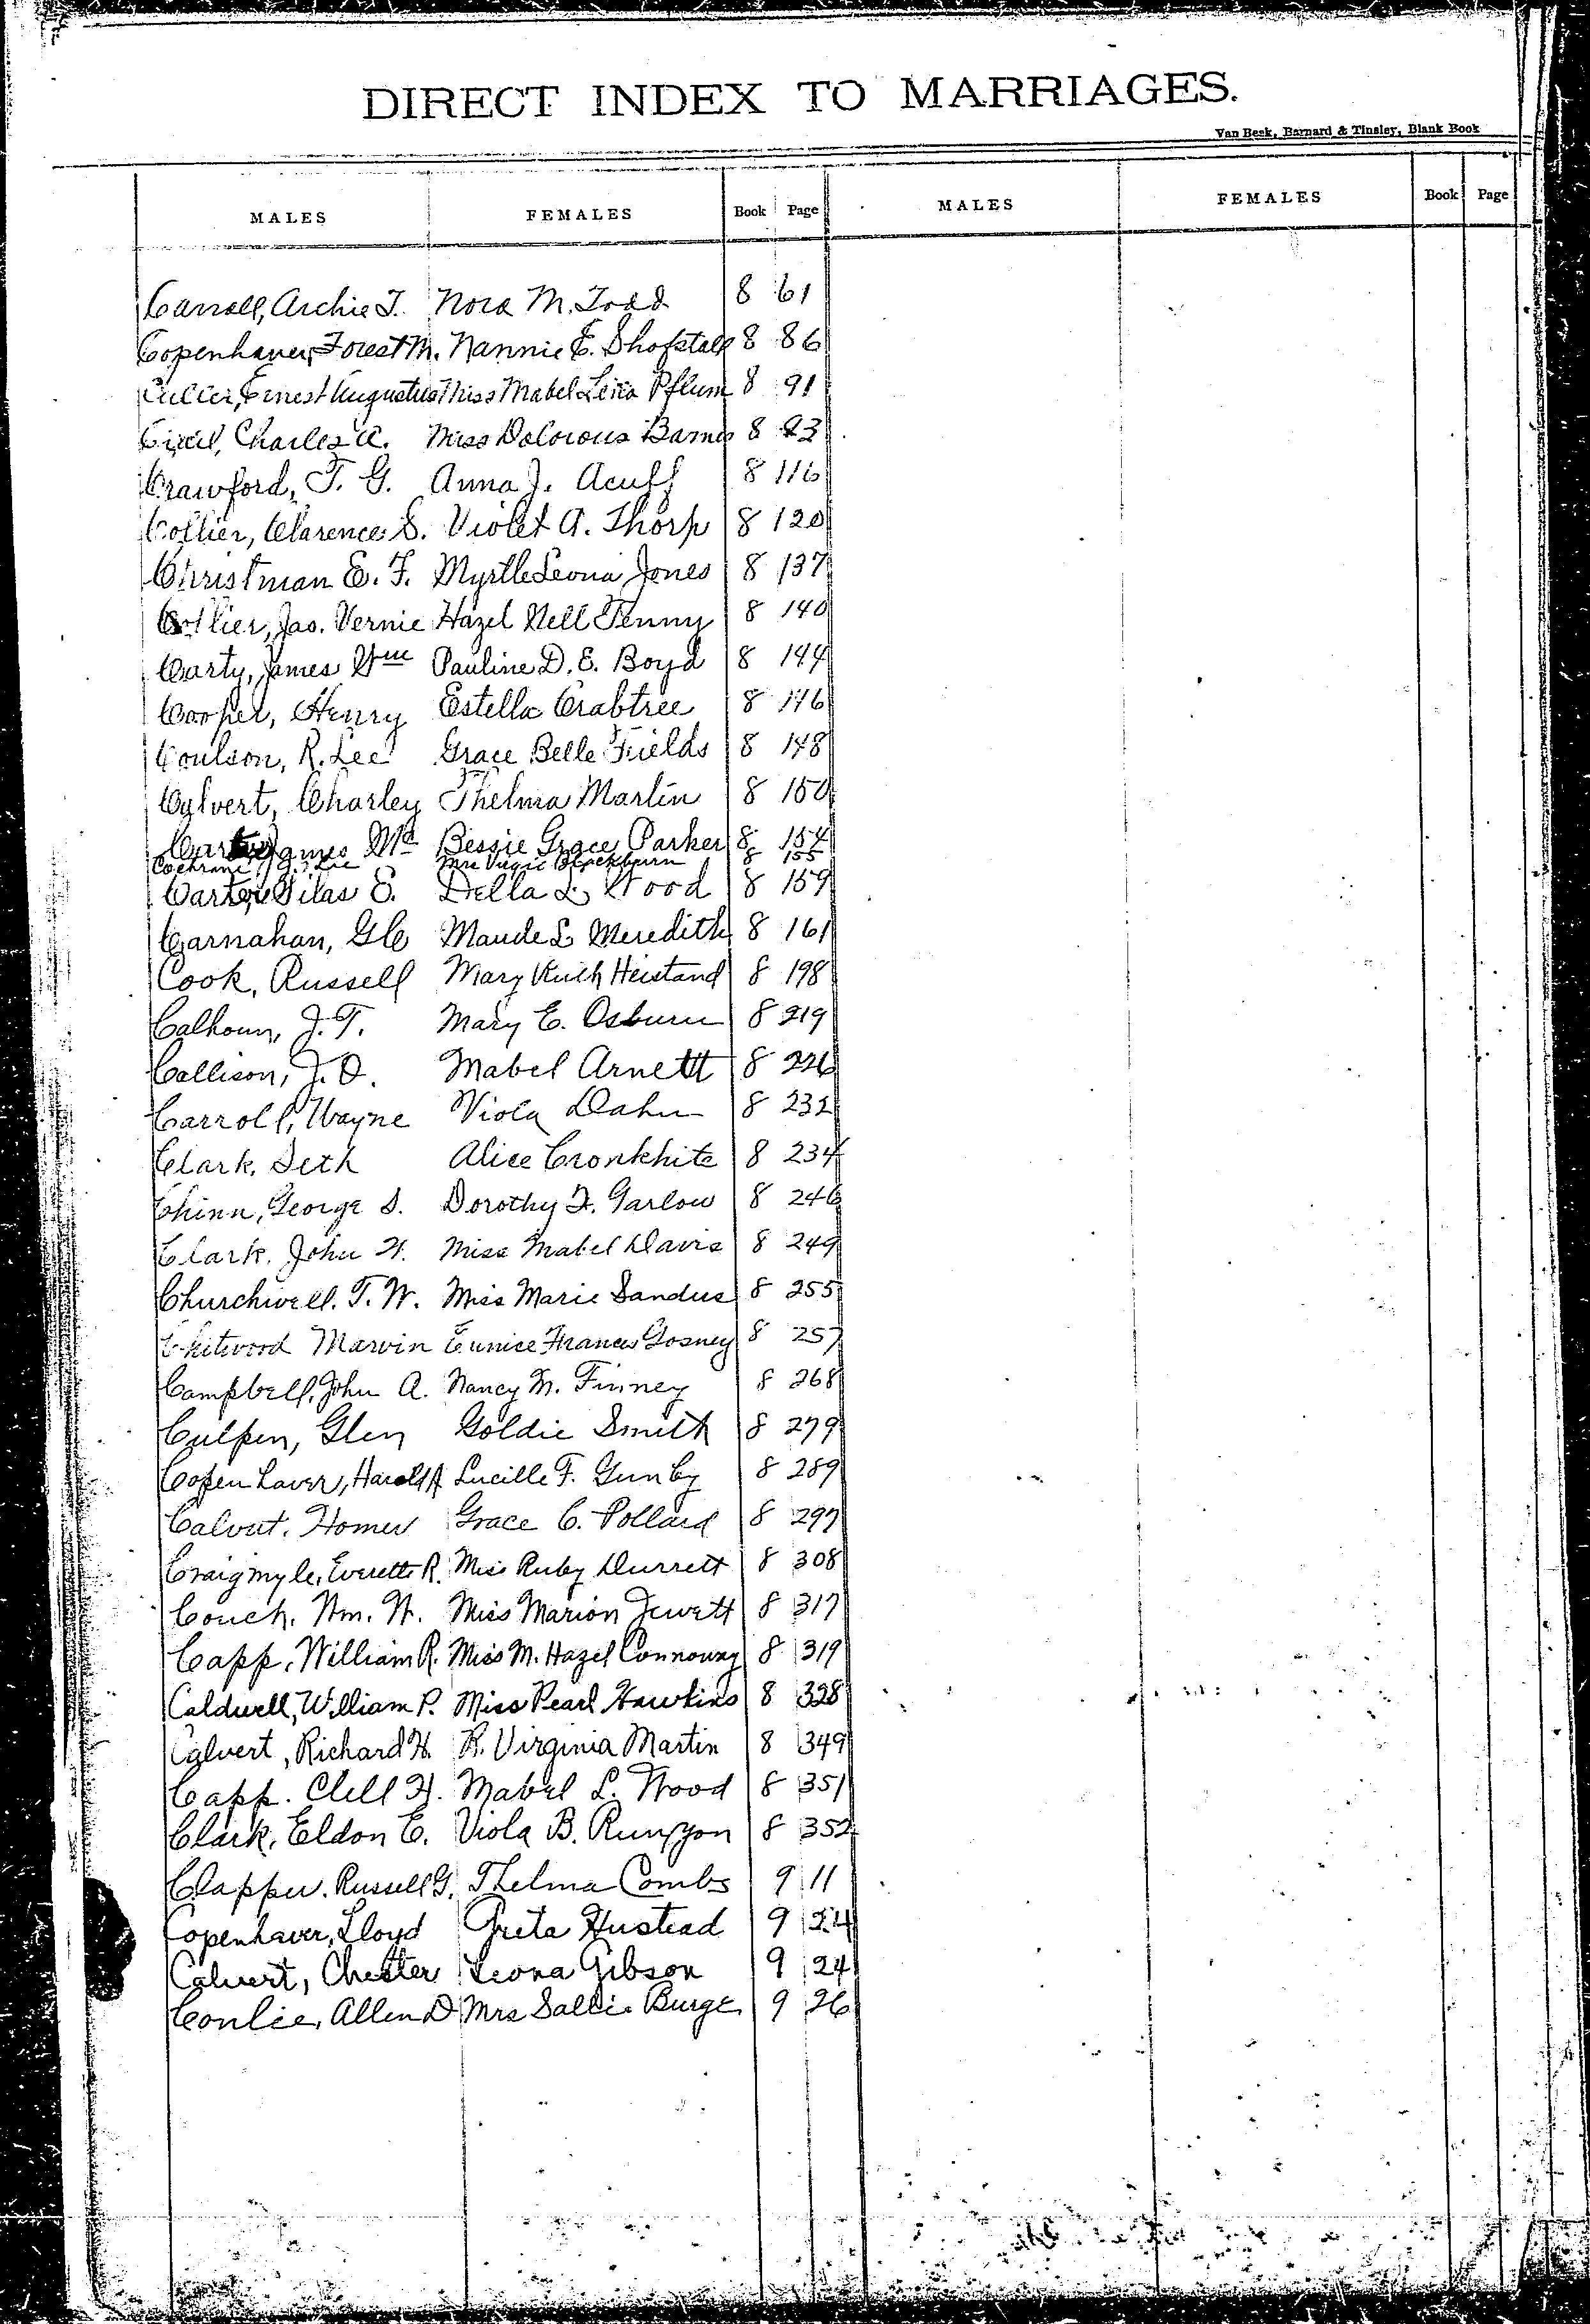 DIRECT INDEX TO MARRIAGES.
Van Beek, Barnard & Tinsley, Blank Book
MALES FEMALES Book Page MALES FEMALES Book Page
Carroll, Archie T. Nora M. Todd 8 61
Copenhaver, Forest M. Nannie E. Shofstall 8 86
Ernest Augustus Miss Mabel Pflum 8 91
Charles A. Miss Dolorous Barnes 8 93
Crawford, T. G. Anna J. Acuff 8 116
Collier, Clarence S. Violet A. Thorp 8 120
Christman E. F. Myrtle Leona Jones 8 137
Collier, Jas. Vernie Hazel Nell Penny 8 140
Carty, James Wm Pauline D. E. Boyd 8 144
Cooper, Henry Estella Crabtree 8 146
Coulson, R. Lee Grace Belle Fields 8 148
Calvert, Charley Thelma Martin 8 150
James Mc Bessie Grace Parker 8 154
Cochrane, J. Lee Mrs Virgie Blackburn 8 155
Carter, Silas E. Della L. Wood 8 159
Carnahan, G C Maude L Meredith 8 161
Cook, Russell Mary Ruth Heistand 8 198
Calhoun, J. T. Mary E. Osburn 8 219
Callison, J. O. Mabel Arnett 8 226
Carroll, Wayne Viola Dahn 8 232
Clark, Seth Alice Cronkhite 8 234
Chinn, George S. Dorothy F. Garlow 8 246
Clark, John H. Miss Mabel Davis 8 249
Churchwell, T. W. Miss Marie Sandus 8 255
Chitwood Marvin Eunice Frances Gosney 8 257
Campbell, John A. Nancy M. Finney 8 268
Culpen, Glen Goldie Smith 8 279
Copenhaver, Harold A Lucille F. Gunby 8 289
Calvert, Homer Grace C. Pollard 8 297
Craigmyle, Everette R. Miss Ruby Durrett 8 308
Couch, Wm. H. Miss Marion Jewett 8 317
Capp, William R. Miss M. Hazel Connoway 8 319
Caldwell, William P. Miss Pearl Hawkins 8 328
Calvert, Richard H. R. Virginia Martin 8 349
Capp, Clell H. Mabel L. Wood 8 351
Clark, Eldon E. Viola B. Runyon 8 352
Clapper, Russell G. Thelma Combs 9 11
Copenhaver, Lloyd Greta Hustead 9 24
Calvert, Chester Leona Gibson 9 24
Conlee, Allen D Mrs Sallie Burge 9 26